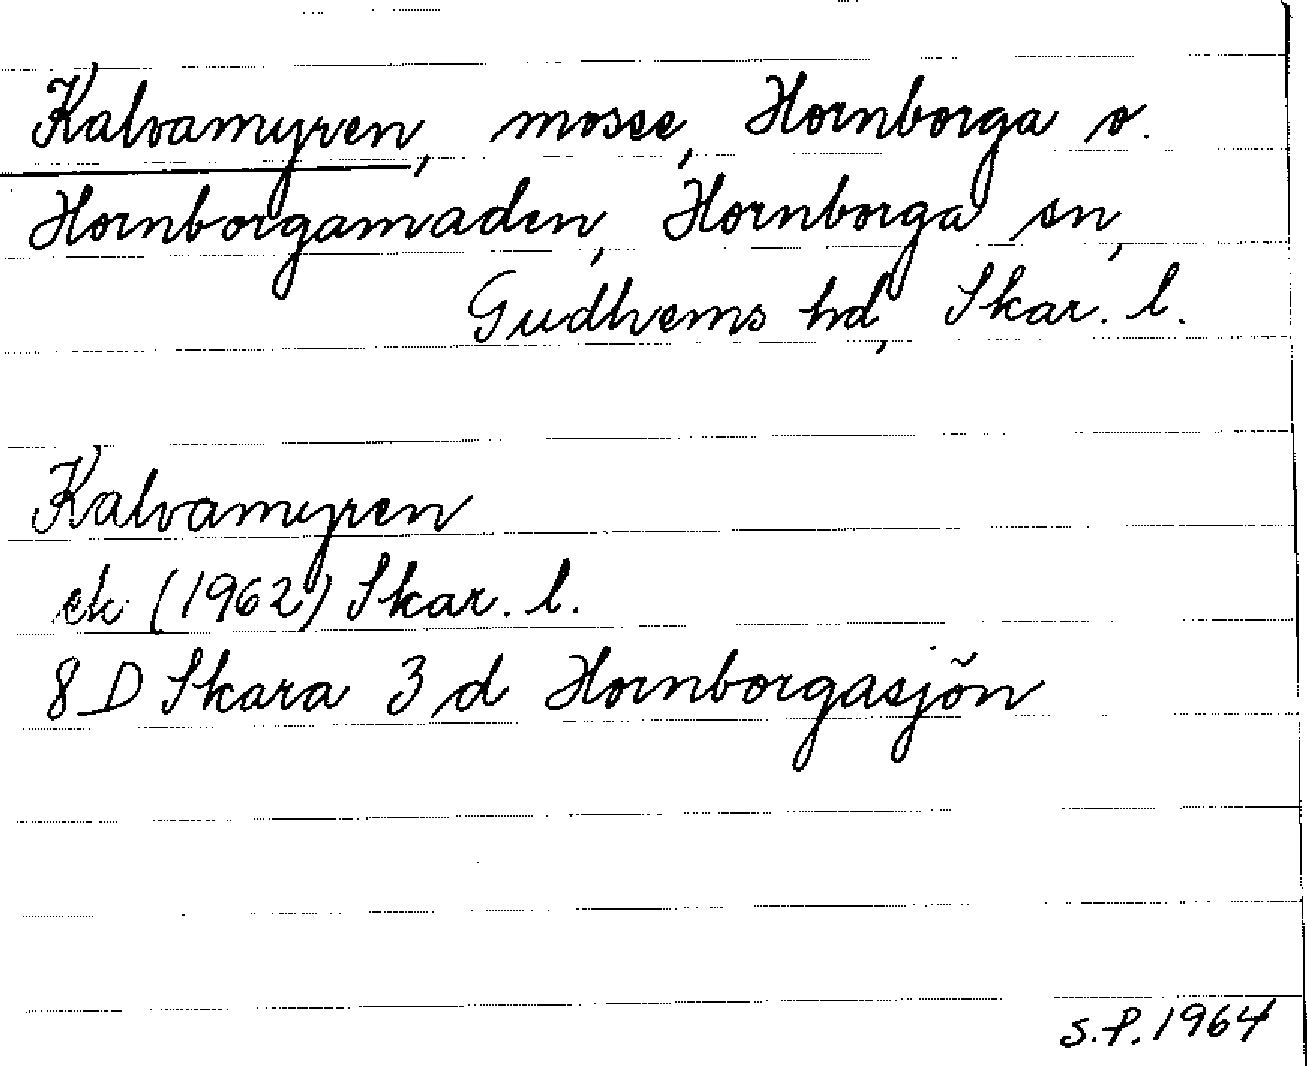 Kalvamyren, mosse, Hornborga o.
Hornborgamaden, Hornborga sn,
Gudhems hd, Skar. l.
Kalvamyren
ek (1962) Skar. l.
8 D Skara 3 d Hornborgasjön
S.P. 1964